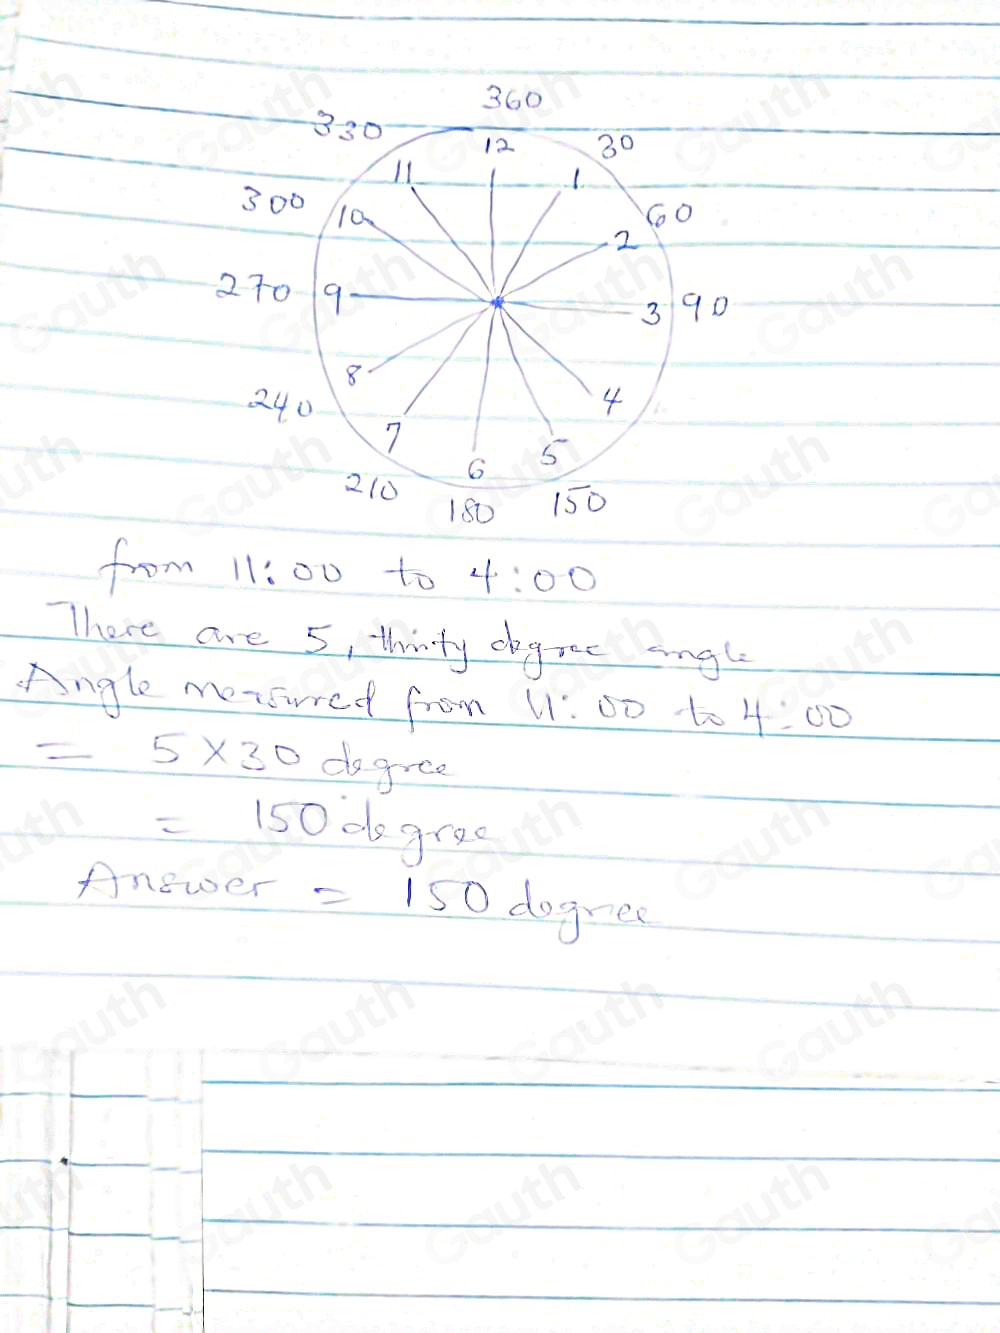 360
330
12
30
11
1
300
10
60
2
270
9
3
90
8
4
240
7
5
6
210
180
150
from 11:00 to 4:00
There are 5, thirty degree angle
Angle measured from 11:00 to 4:00
= 5 × 30 degree
= 150 degree
Answer = 150 degree
Gauth